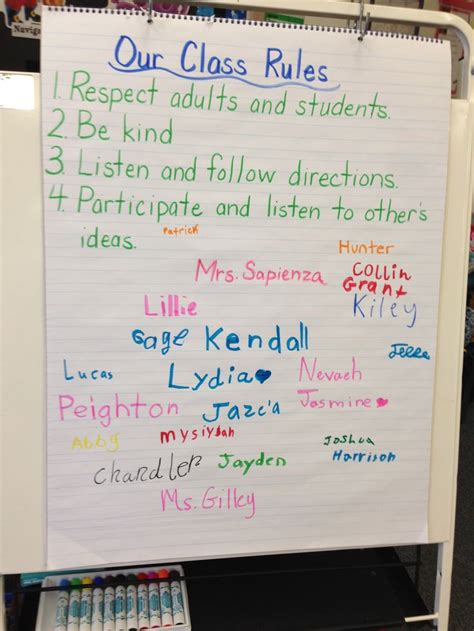 Our Class Rules
1. Respect adults and students.
2. Be kind
3. Listen and follow directions.
4. Participate and listen to other's
ideas.
Patrick
Hunter
Mrs. Sapienza
Collin
Grant
Lillie
Kiley
Gage
Kendall
Jella
Lucas
Lydia
Nevaeh
Peighton
Jazc'a
Jasmine
Abby
mysiyah
Joshua
Harrison
Chandler
Jayden
Ms. Gilley